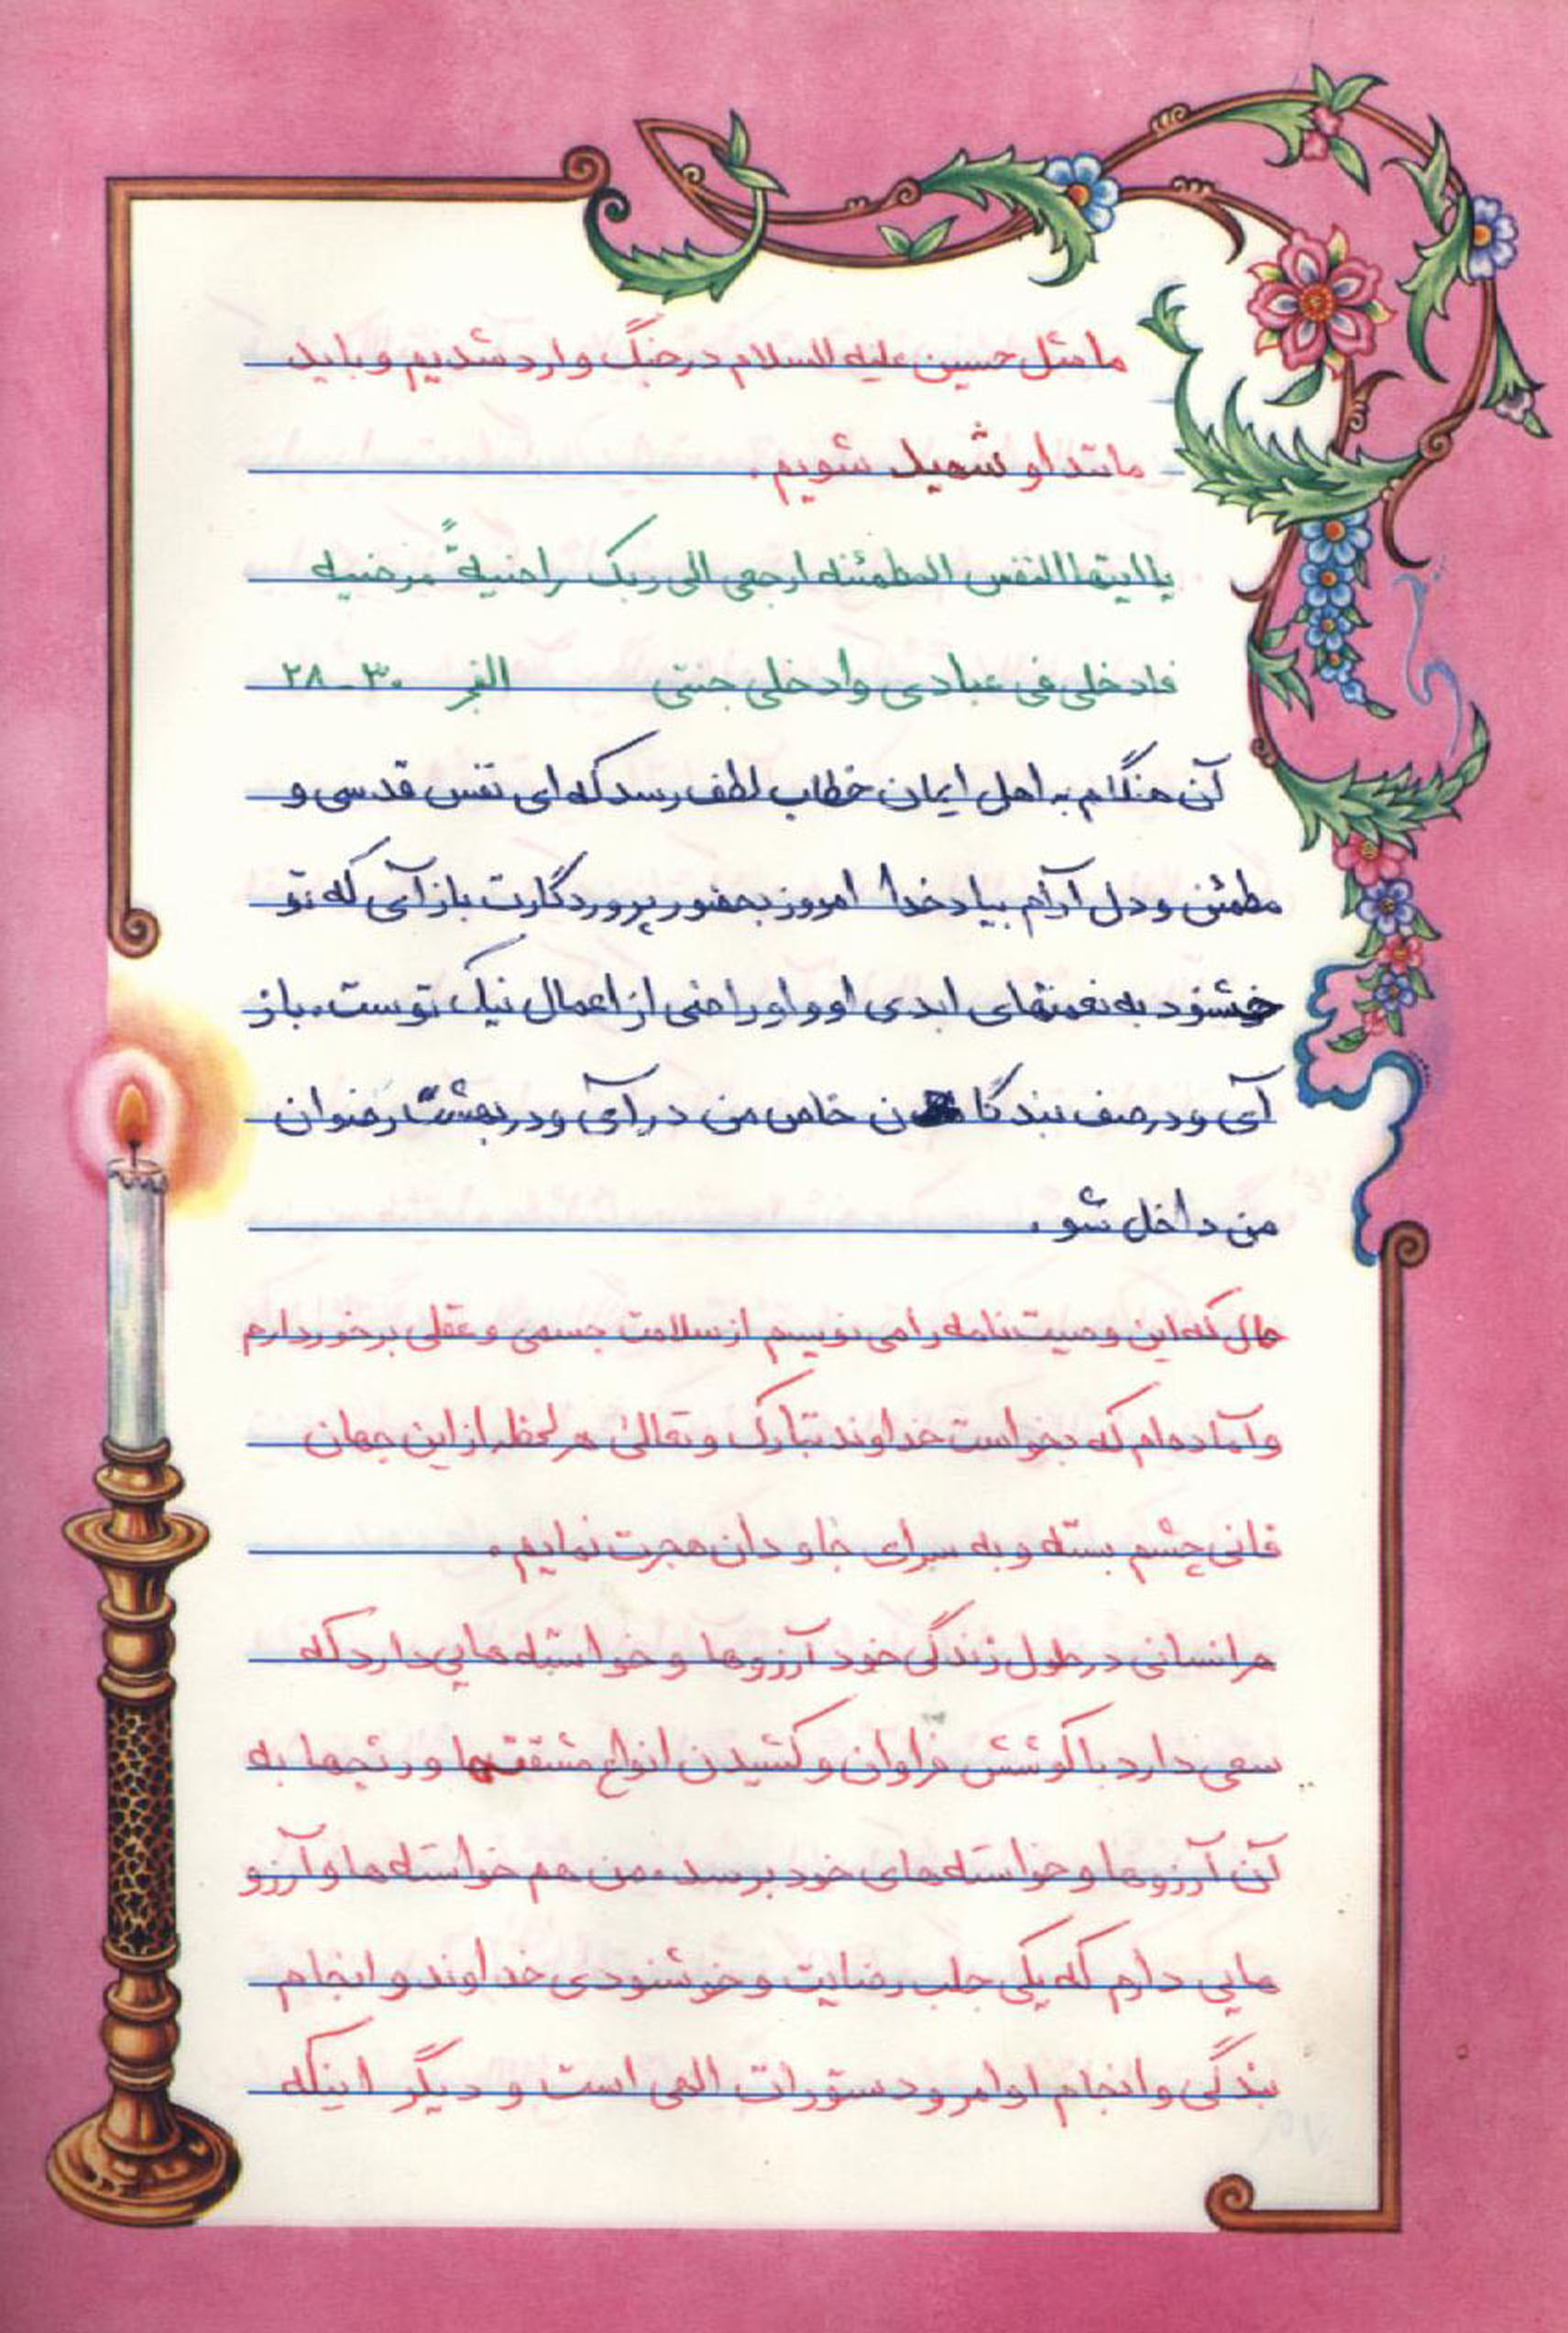 ما مثل حسین علیه السلام در جنگ وارد شدیم و باید
مانند او شهید شویم.
یا ایتها النفس المطمئنه ارجعی الی ربک راضیةً مرضیه
فادخلی فی عبادی وادخلی جنتی الفجر ۳۰-۲۸
آن هنگام به اهل ایمان خطاب لطف رسد که ای نفس قدسی و
مطمئن و دل آرام بیاد خدا امروز بحضور پروردگارت باز آی که تو
خشنود به نعمتهای ابدی او و او راضی از اعمال نیک توست. باز
آی و در صف بندگان خاص من در آی و در بهشت رضوان
من داخل شو.
حال که این وصیت‌نامه را می نویسم از سلامت جسمی و عقلی برخوردارم
و آماده‌ام که بخواست خداوند تبارک و تعالی هر لحظه از این جهان
فانی چشم بسته و به سرای جاودان هجرت نمایم.
هر انسانی در طول زندگی خود آرزوها و خواسته هایی دارد که
سعی دارد با کوشش فراوان و کشیدن انواع مشقتها و رنجها به
آن آرزوها و خواسته های خود برسد. من هم خواسته ها و آرزو
هایی دارم که یکی جلب رضایت و خوشنودی خداوند و انجام
بندگی و انجام اوامر و دستورات الهی است و دیگر اینکه